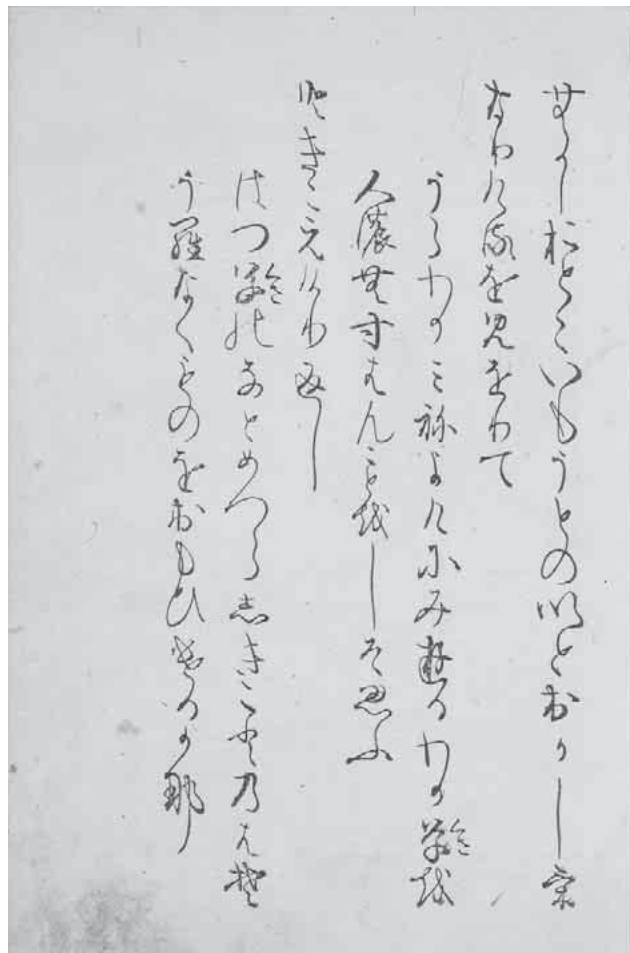 むかしおとこいもうとのいとおかしけ
なりけるを見をりて
うらわかみねよけにみゆるわか草を
人のむすはんことをしそ思ふ
ときこえけり返し
はつ草のなとめつらしきことのはそ
うらなくものをおもひけるかな